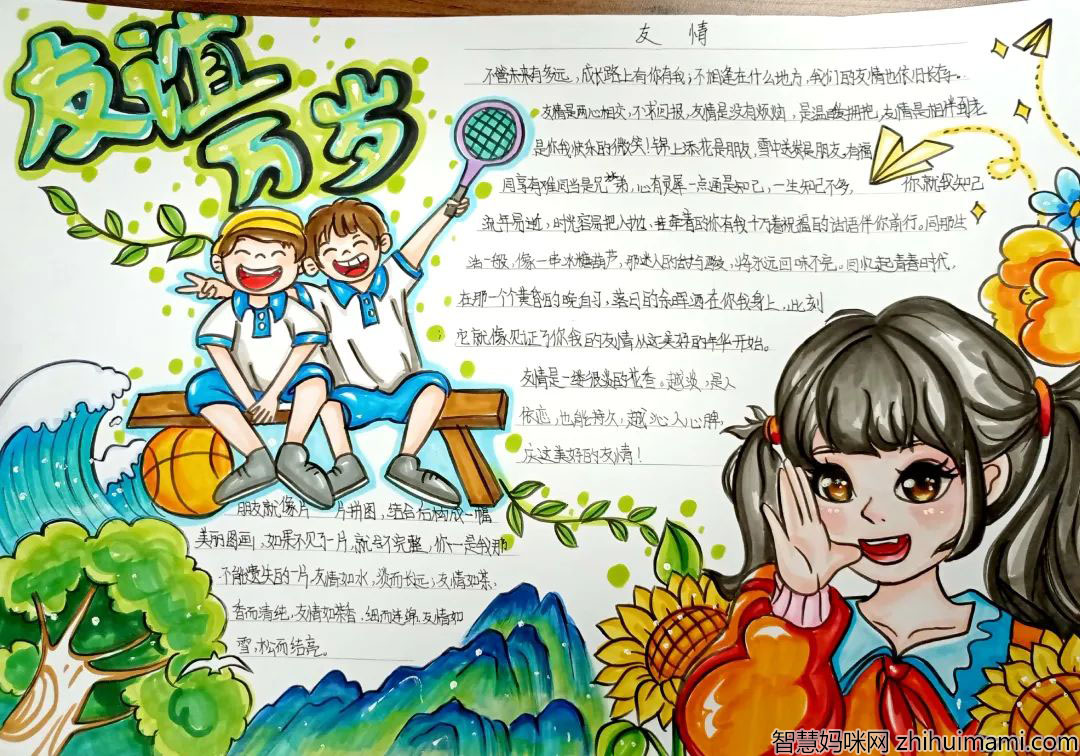 友谊
万岁
友 情
不管未来有多远，成长路上有你有我，不相逢在什么地方，我们的友情也依旧长存。
友情是两心相交，不求回报，友情是没有烦恼，是温暖拥抱，友情是相伴到老
是你我快乐的微笑！锦上添花是朋友，雪中送炭是朋友，有福
同享有难同当是兄弟，心有灵犀一点通是知己，一生知己不多， 你就我知己
流年易逝，时光容易把人抛，
的你有我十万着祝福的话语伴你前行。同那生
活一般，像一串冰糖葫芦，那迷人的
将永远回味不完。回忆起青春时代，
在那一个黄昏的晚自习，落日的余晖洒在你我身上，此刻
它就像见证了你我的友情从这美好的年华开始。
友情是一缕很淡的花香。越淡，是人
依恋，也能持久，越沁人心脾，
庆这美好的友情！
朋友就像片一片拼图，结合后构成一幅
美丽图画，如果不见了一片，就
不完整，你一是我那
不能遗失的一片，友情如水，淡而长远，友情如茶，
香而清纯，友情如茶香，细而连绵，友情如
雪，松而结亮。
智慧妈咪网 zhihuimami.com